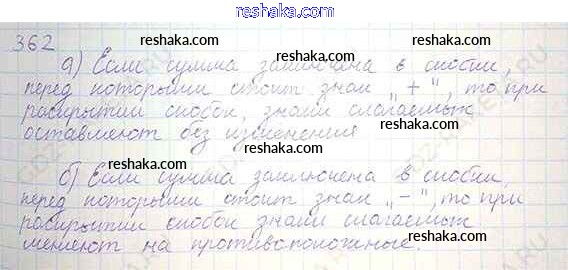 reshaka.com
362
reshaka.com reshaka.com
а) Если сумма заключена в скобки,
перед которыми стоит знак „+", то при
reshaka.com
раскрытии скобок, знаки слагаемых
оставляют без изменения.
reshaka.com reshaka.com
б) Если сумма заключена в скобки,
перед которыми стоит знак „–", то при
reshaka.com
раскрытии скобок знаки слагаемых
меняют на противоположные.
reshaka.com
reshaka.com